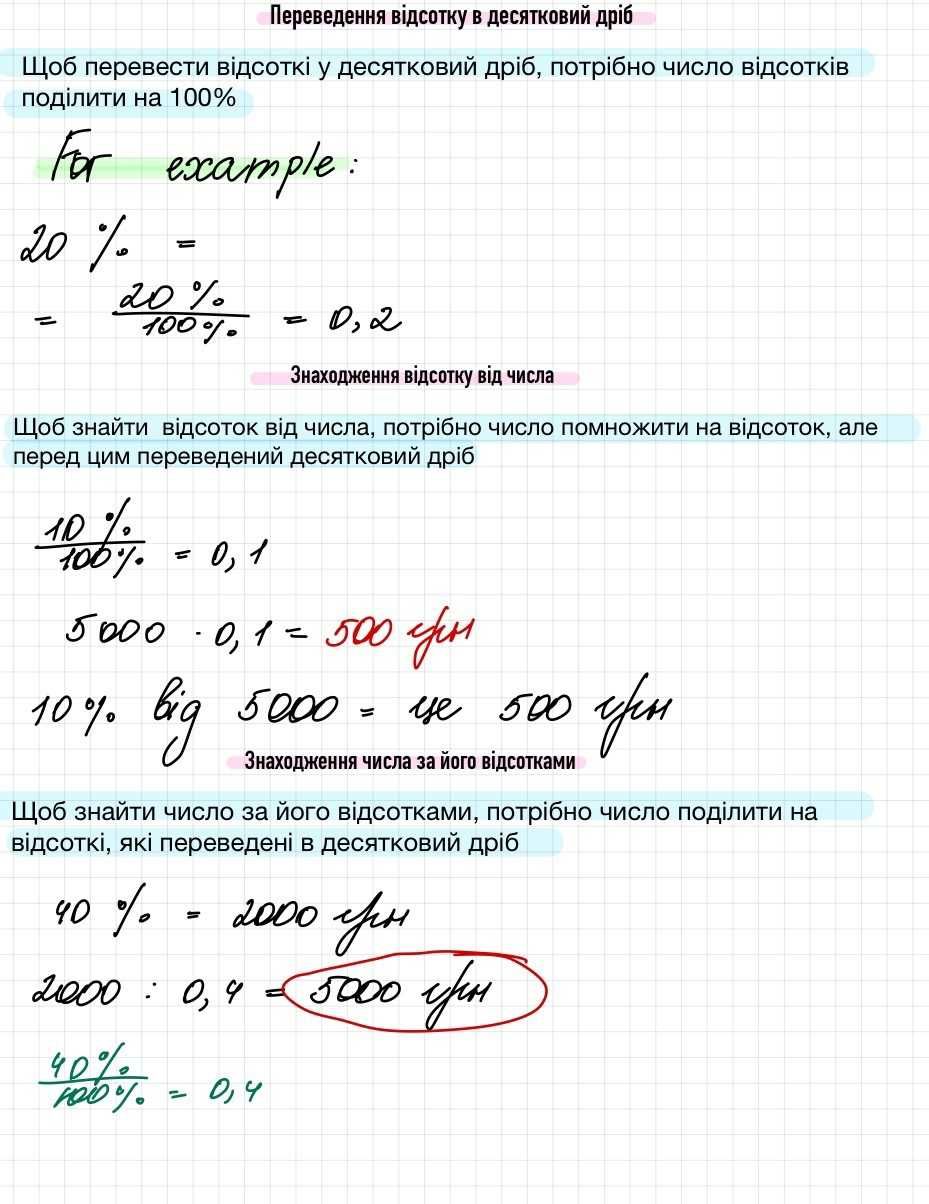 Переведення відсотку в десятковий дріб
Щоб перевести відсоткі у десятковий дріб, потрібно число відсотків
поділити на 100%
For example:
20 % =
= 20 % / 100 % = 0,2
Знаходження відсотку від числа
Щоб знайти відсоток від числа, потрібно число помножити на відсоток, але
перед цим переведений десятковий дріб
10 % / 100 % = 0,1
5000 · 0,1 = 500 грн
10 % від 5000 = це 500 грн
Знаходження числа за його відсотками
Щоб знайти число за його відсотками, потрібно число поділити на
відсоткі, які переведені в десятковий дріб
40 % = 2000 грн
2000 : 0,4 = 5000 грн
40 % / 100 % = 0,4